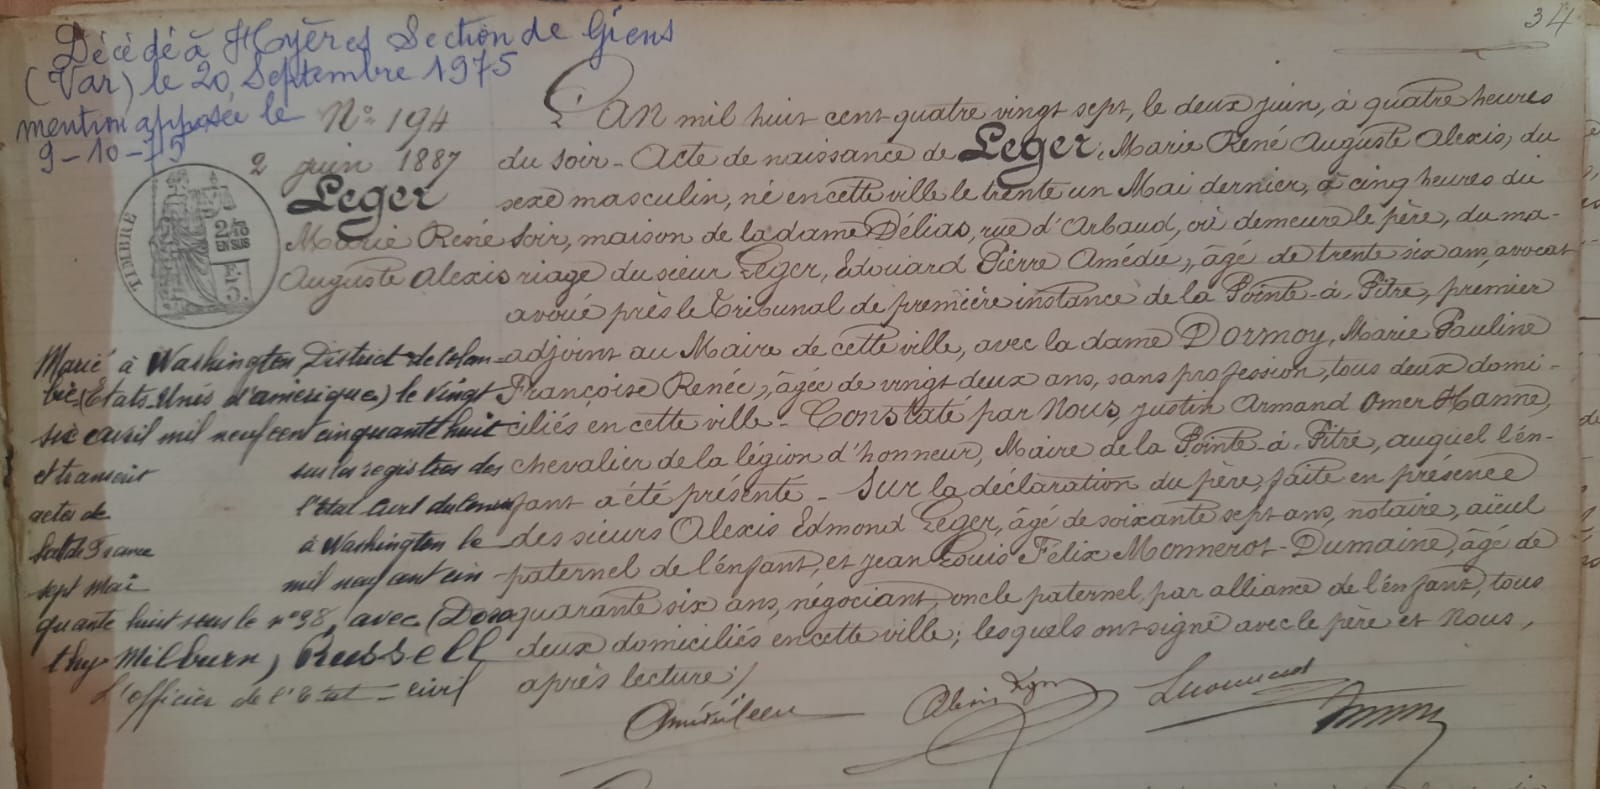 34
Décédé à Hyères Section de Giens
(Var) le 20 Septembre 1975
mention apposée le
9-10-75
N° 194
2 juin 1887
Leger
Marie René
Auguste Alexis
TIMBRE
2/10 EN SUS
Marié à Washington District de Colom-
bie (Etats-Unis d'amérique) le vingt
six avril mil neuf cent cinquante huit
et transcrit sur les registres des
actes de l'état civil du Consu
lat de France à Washington le
sept mai mil neuf cent cin-
quante huit sous le n° 98, avec Doro
thy Milburn, Russell
L'officier de l'Etat-civil
L'An mil huit cent quatre vingt sept, le deux juin, à quatre heures
du soir - Acte de naissance de Leger, Marie René Auguste Alexis, du
sexe masculin, né en cette ville le trente un Mai dernier, à cinq heures du
soir, maison de la dame Délias, rue d'Arbaud, où demeure le père, du ma-
riage du sieur Leger, Edouard Pierre Amédée, âgé de trente six ans, avocat
avoué près le Tribunal de première instance de la Pointe-à-Pitre, premier
adjoint au Maire de cette ville, avec la dame Dormoy, Marie Pauline
Françoise Renée, âgée de vingt deux ans, sans profession, tous deux domi-
ciliés en cette ville - Constaté par Nous, Justin Armand Omer Hanne,
chevalier de la légion d'honneur, Maire de la Pointe-à-Pitre, auquel l'en-
fant a été présenté - Sur la déclaration du père, faite en présence
des sieurs Alexis Edmond Leger, âgé de soixante sept ans, notaire, aïeul
paternel de l'enfant, et Jean Louis Félix Monnerot-Dumaine, âgé de
quarante six ans, négociant, oncle paternel par alliance de l'enfant, tous
deux domiciliés en cette ville; lesquels ont signé avec le père et Nous,
après lecture ;/